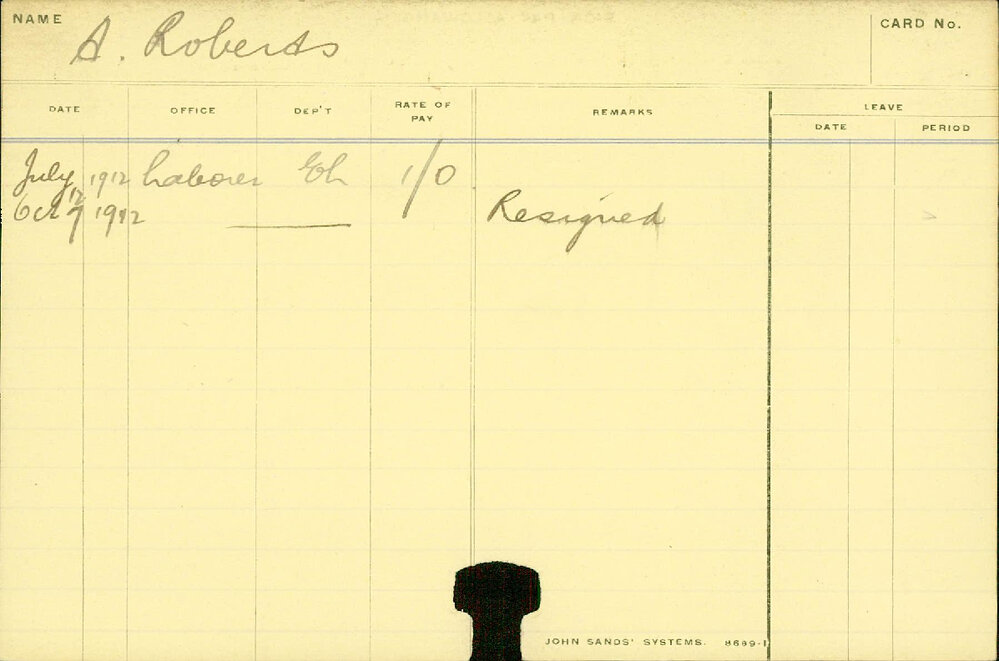 NAME A. Roberts CARD No.
DATE OFFICE DEP'T RATE OF PAY REMARKS LEAVE
DATE PERIOD
July 12 1912 Laborer 1/0
Oct 7 1912 Resigned
JOHN SANDS' SYSTEMS. 8689-1